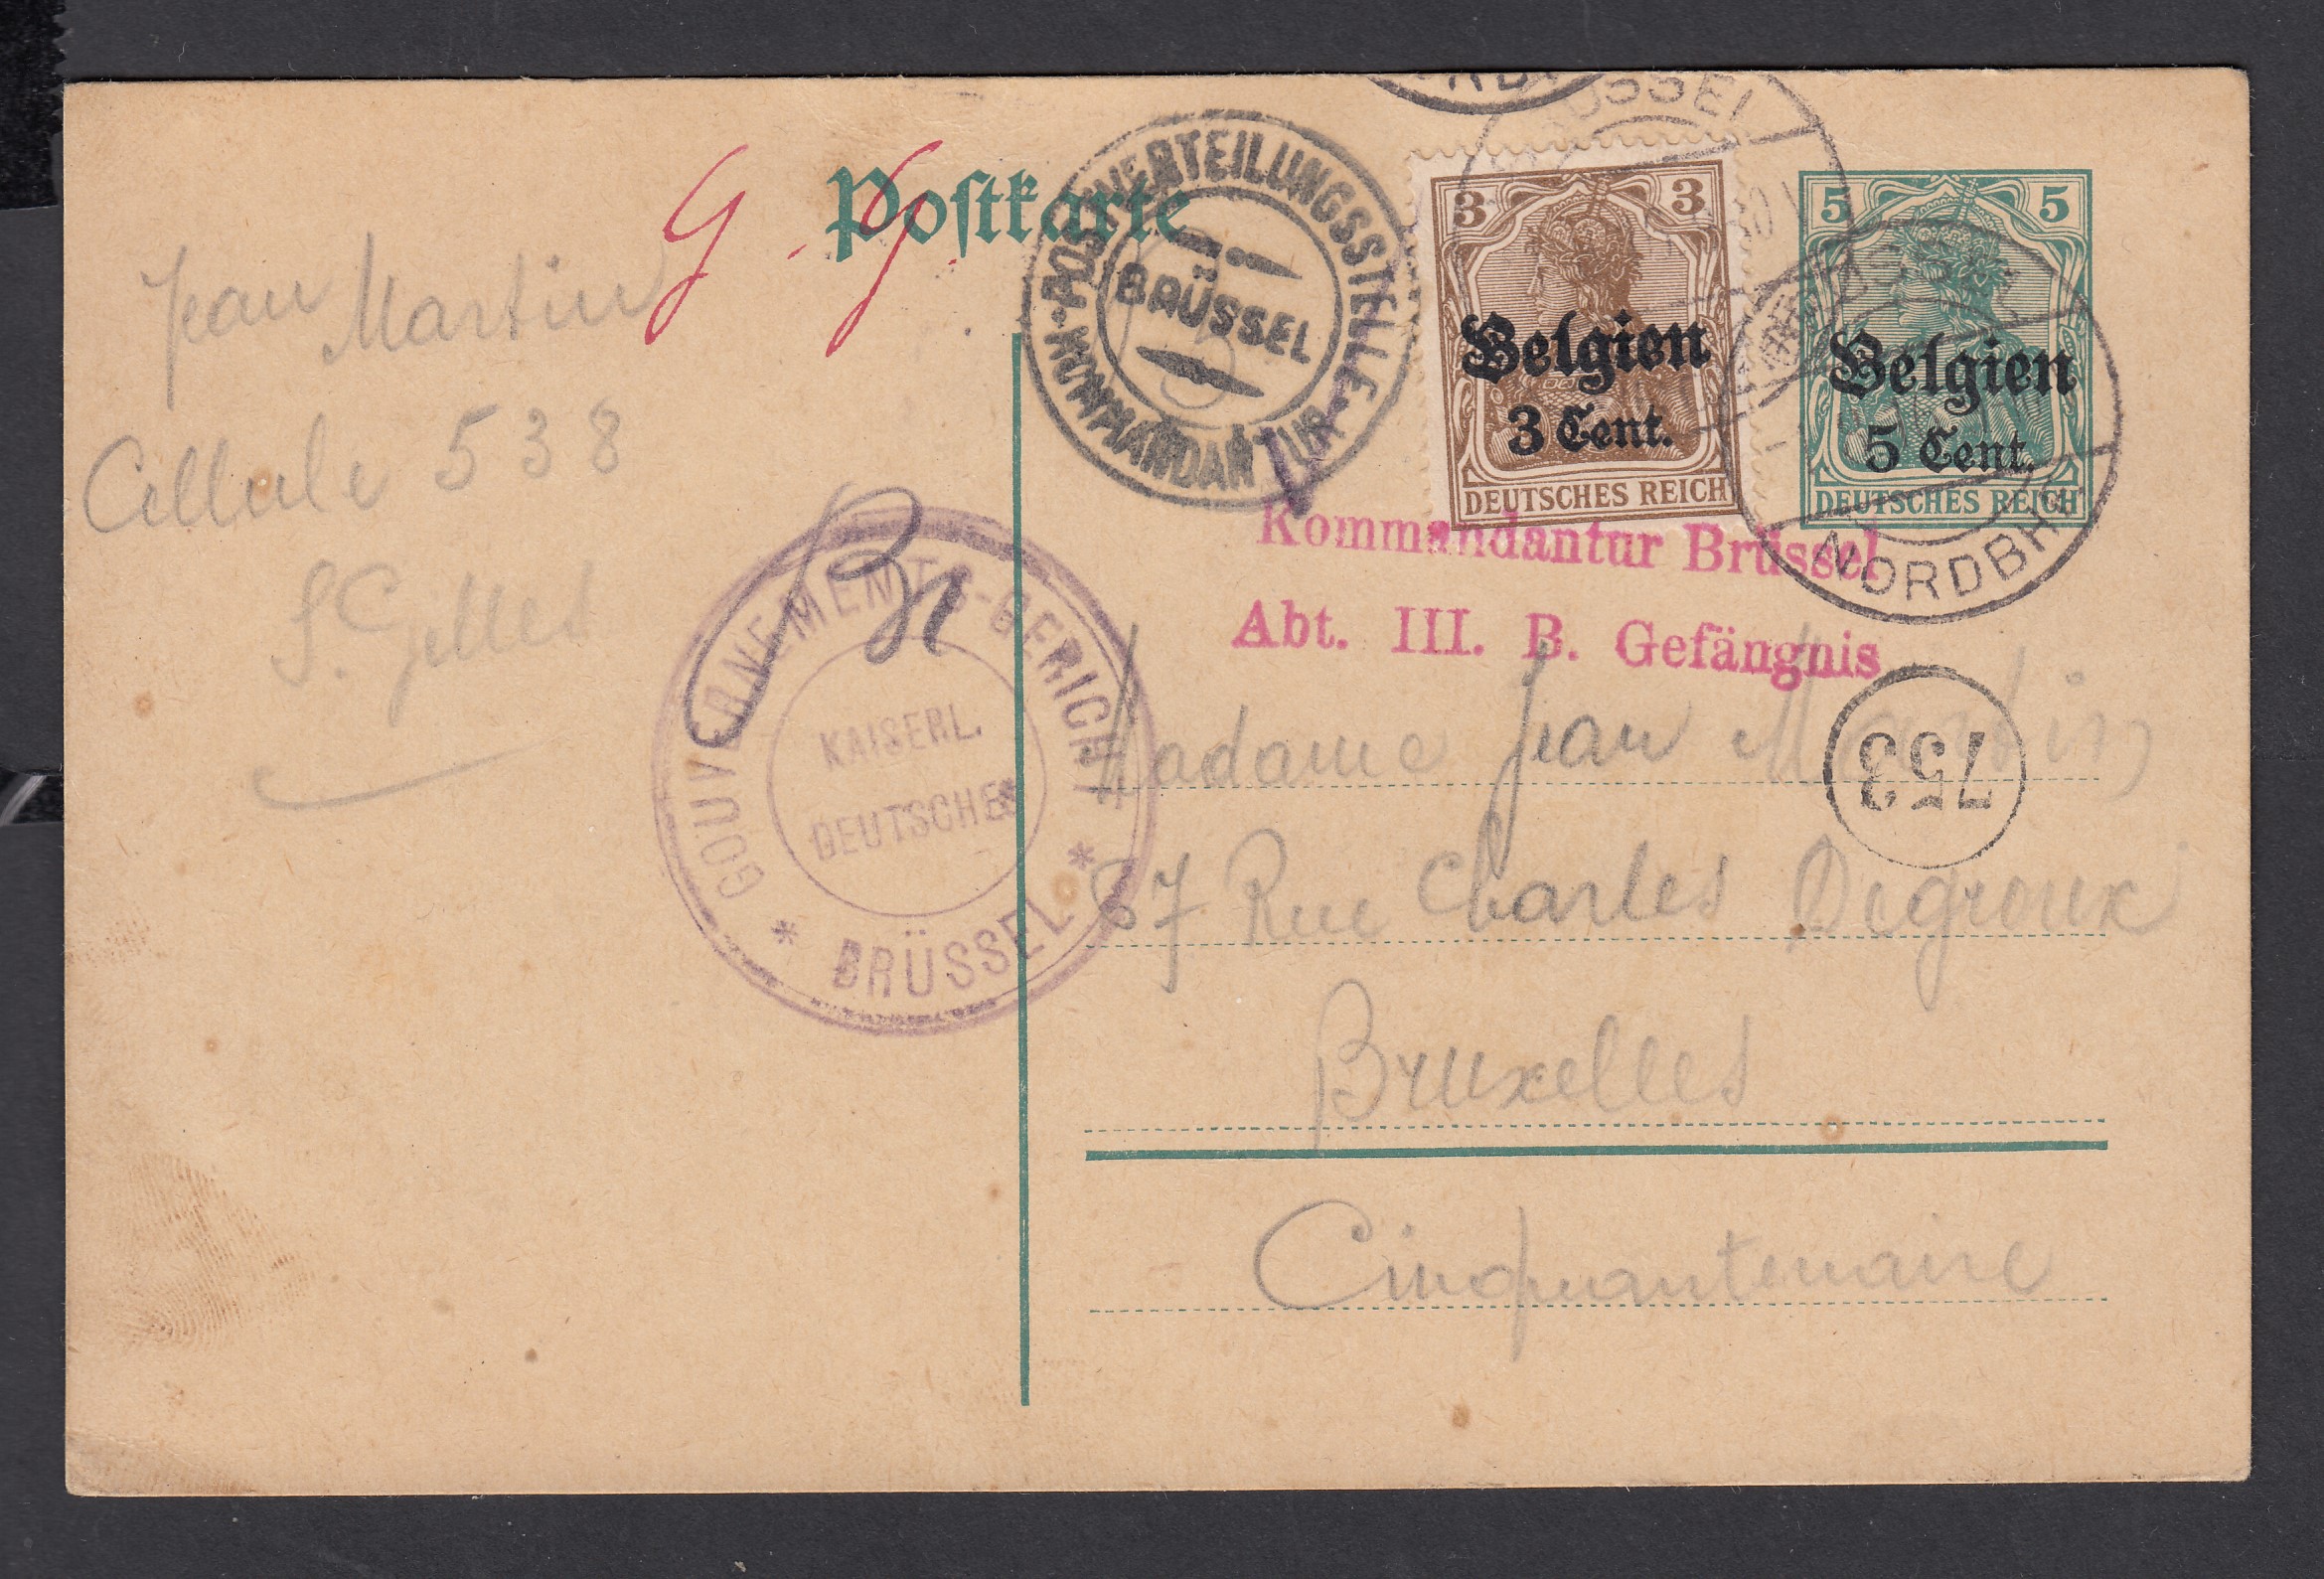 Postkarte
g. g.
Jean Martin
Cellule 538
St. Gilles
POSTVERTEILUNGSSTELLE
BRÜSSEL
KOMMANDANTUR
3 3
Belgien
3 Cent.
DEUTSCHES REICH
5 5
Belgien
5 Cent.
DEUTSCHES REICH
BRÜSSEL
NORDBHF
Kommandantur Brüssel
Abt. III. B. Gefängnis
GOUVERNEMENTS-GERICHT
KAISERL.
DEUTSCHES
* BRÜSSEL *
753
Madame Jean Martin
67 Rue Charles Degroux
Bruxelles
Cinquantenaire